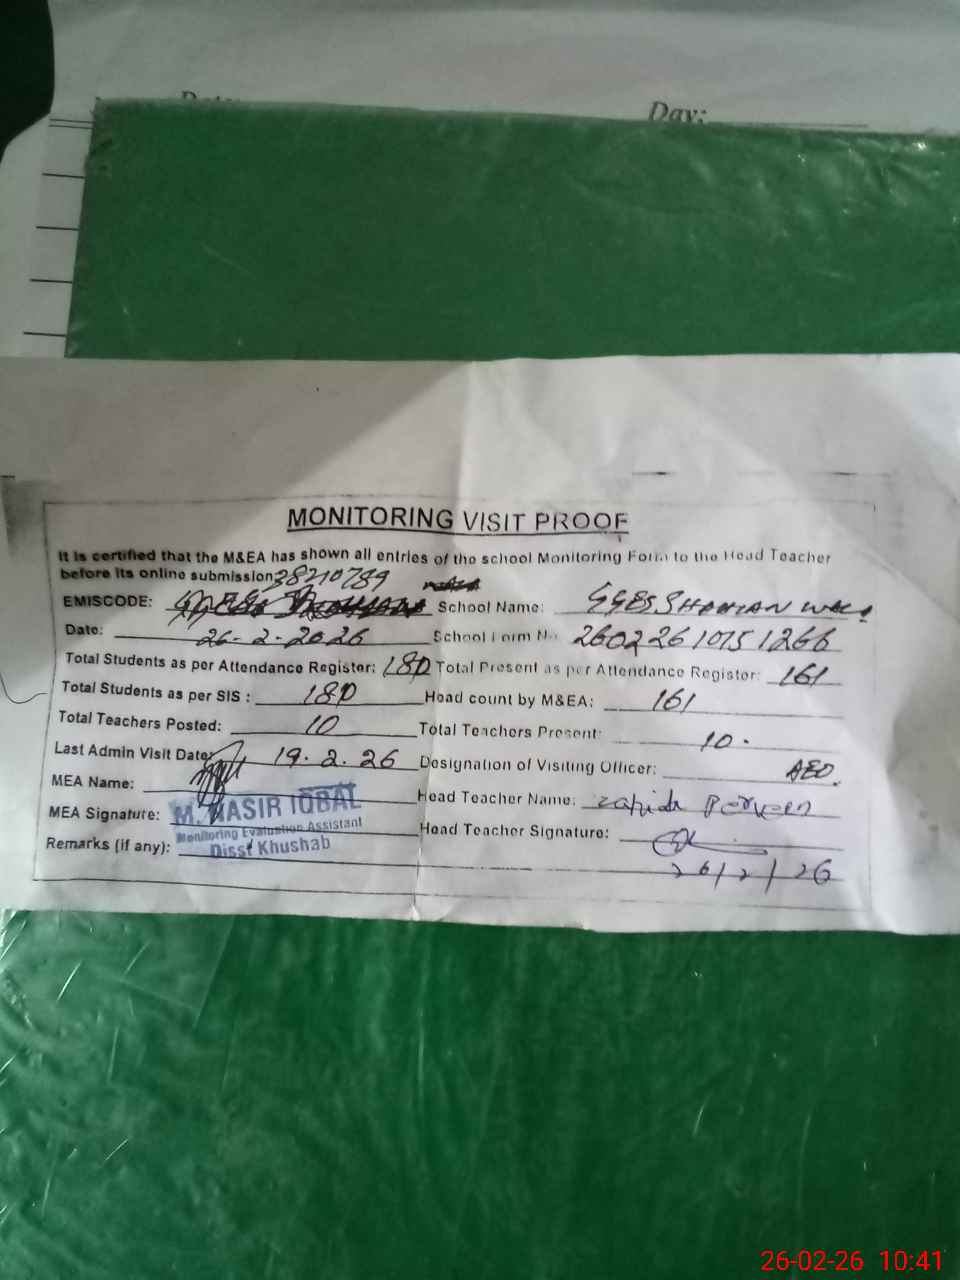 Day:
MONITORING VISIT PROOF
It is certified that the M&EA has shown all entries of the school Monitoring Form to the Head Teacher
before its online submission 38210789
EMISCODE: School Name: GGES SHAHAN WALA
Date: 26-2-2026 School Form No: 26022610751266
Total Students as per Attendance Register: 180 Total Present as per Attendance Register: 161
Total Students as per SIS : 180 Head count by M&EA: 161
Total Teachers Posted: 10 Total Teachers Present: 10.
Last Admin Visit Date: 19.2.26 Designation of Visiting Officer: AEO.
MEA Name: Head Teacher Name: Zahida Perveen
MEA Signature: M. NASIR IQBAL Head Teacher Signature:
Monitoring Evaluation Assistant
Remarks (if any): Disst Khushab 26/2/26
26-02-26 10:41